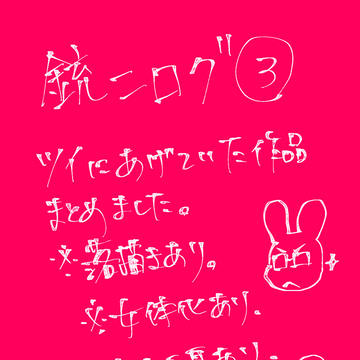 銃二ログ③
ツイにあげていた作品
まとめました。
※落描きあり。
※女体化あり.